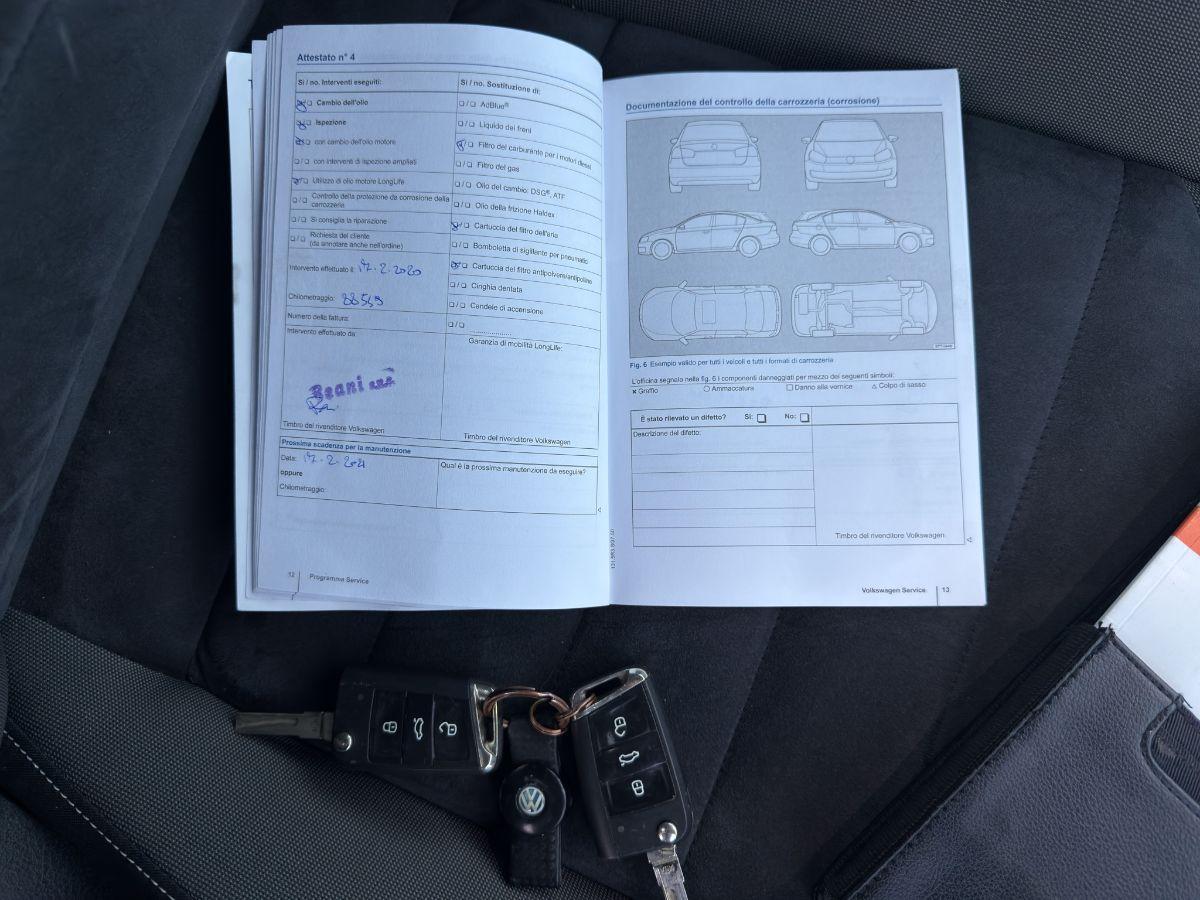 Attestato n° 4
Si / no. Interventi eseguiti:
❏/❏ Cambio dell'olio
❏/❏ Ispezione
❏/❏ con cambio dell'olio motore
❏/❏ con interventi di ispezione ampliati
❏/❏ Utilizzo di olio motore LongLife
❏/❏ Controllo della protezione da corrosione della
carrozzeria
❏/❏ Si consiglia la riparazione
❏/❏ Richiesta del cliente
(da annotare anche nell'ordine)
Intervento effettuato il: 17.2.2020
Chilometraggio: 88549
Numero della fattura:
Intervento effettuato da:
Timbro del rivenditore Volkswagen
Si / no. Sostituzione di:
❏/❏ AdBlue®
❏/❏ Liquido dei freni
❏/❏ Filtro del carburante per i motori diesel
❏/❏ Filtro del gas
❏/❏ Olio del cambio: DSG®, ATF
❏/❏ Olio della frizione Haldex
❏/❏ Cartuccia del filtro dell'aria
❏/❏ Bomboletta di sigillante per pneumatici
❏/❏ Cartuccia del filtro antipolvere/antipolline
❏/❏ Cinghia dentata
❏/❏ Candele di accensione
❏/❏ ....................
Garanzia di mobilità LongLife:
Timbro del rivenditore Volkswagen
Prossima scadenza per la manutenzione
Data: 17.2.2021
oppure
Chilometraggio:
Qual è la prossima manutenzione da eseguire?
12 Programma Service
Documentazione del controllo della carrozzeria (corrosione)
Fig. 6 Esempio valido per tutti i veicoli e tutti i formati di carrozzeria
L'officina segnala nella fig. 6 i componenti danneggiati per mezzo dei seguenti simboli:
× Graffio ○ Ammaccatura □ Danno alla vernice △ Colpo di sasso
È stato rilevato un difetto? Sì: ❏ No: ❏
Descrizione del difetto:
Timbro del rivenditore Volkswagen
Volkswagen Service 13